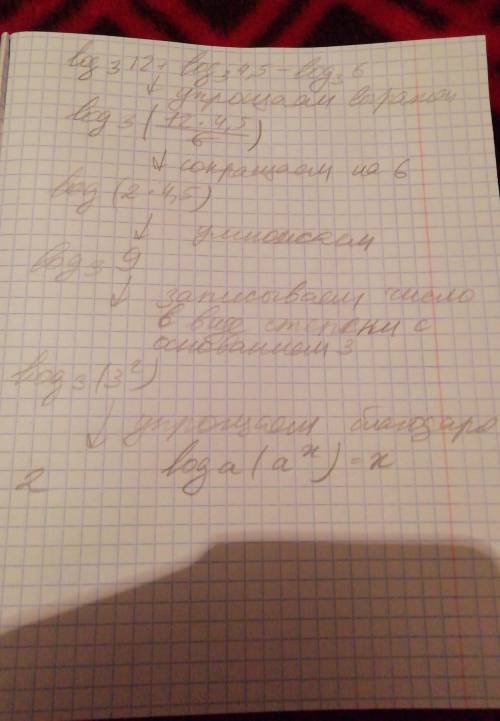 log₃ 12 + log₃ 4,5 - log₃ 6
↓ упрощаем
log₃ (12 · 4,5 / 6)
↓ сокращаем на 6
log (2 · 4,5)
↓ умножаем
log₃ 9
↓ записываем число
в виде степени с
основанием 3
log₃ (3²)
↓ упрощаем благодаря
log a (aˣ) = x
2